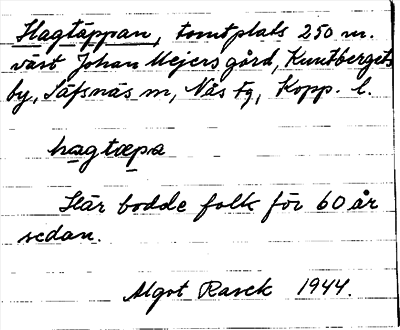 Hagtäppan, tomtplats 250 m.
väst Johan Mejers gård, Knutbergets
by, Säfsnäs sn, Nås fg, Kopp. l.
hagtæpa
Här bodde folk för 60 år
sedan.
Algot Rasck 1944.